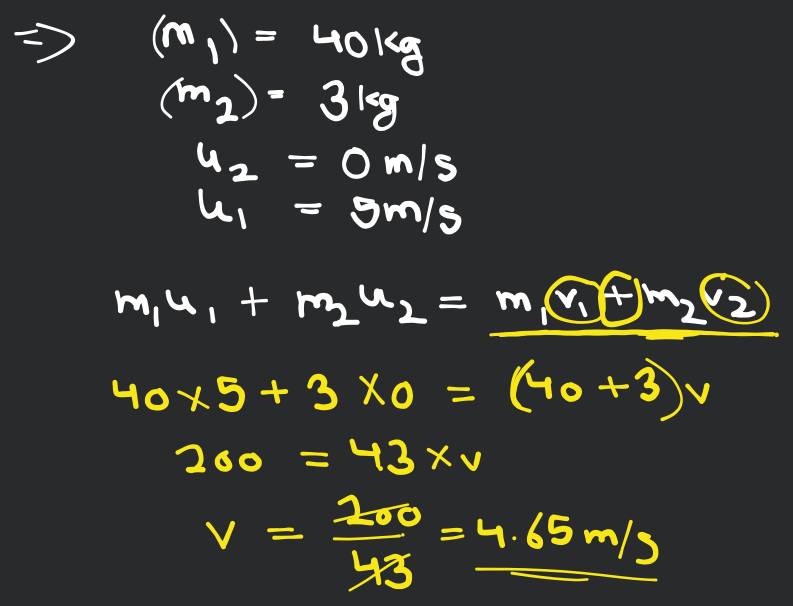 ⇒ (m₁) = 40kg
(m₂) = 3kg
u₂ = 0m/s
u₁ = 5m/s
m₁u₁ + m₂u₂ = m₁v₁ + m₂v₂
40×5 + 3×0 = (40+3)v
200 = 43×v
v = 200/43 = 4.65 m/s